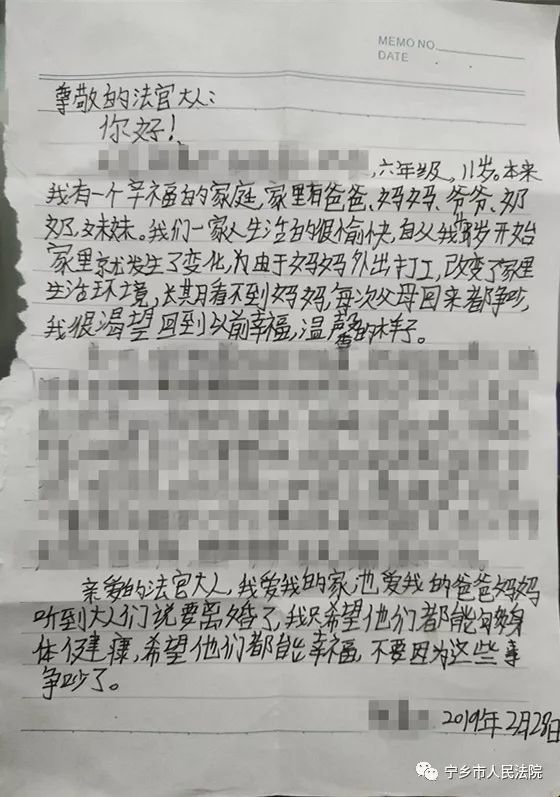 MEMO NO.
DATE
尊敬的法官大人:
你好!
,六年级,11岁。本来
我有一个辛福的家庭,家里有爸爸、妈妈、爷爷、奶
奶,妹妹。我们一家人生活的很愉快,自从我岁开始
家里就发生了变化,为由于妈妈外出打工,改变了家里
生活环境,长期看不到妈妈,每次父母回来都争吵,
我很渴望回到以前幸福,温馨的样子。
亲爱的法官大人,我爱我的家,也爱我的爸爸妈妈
听到大人们说要离婚了,我只希望他们都能够身
体健康,希望他们都能幸福,不要因为这些事
争吵了。
2019年2月28日
宁乡市人民法院